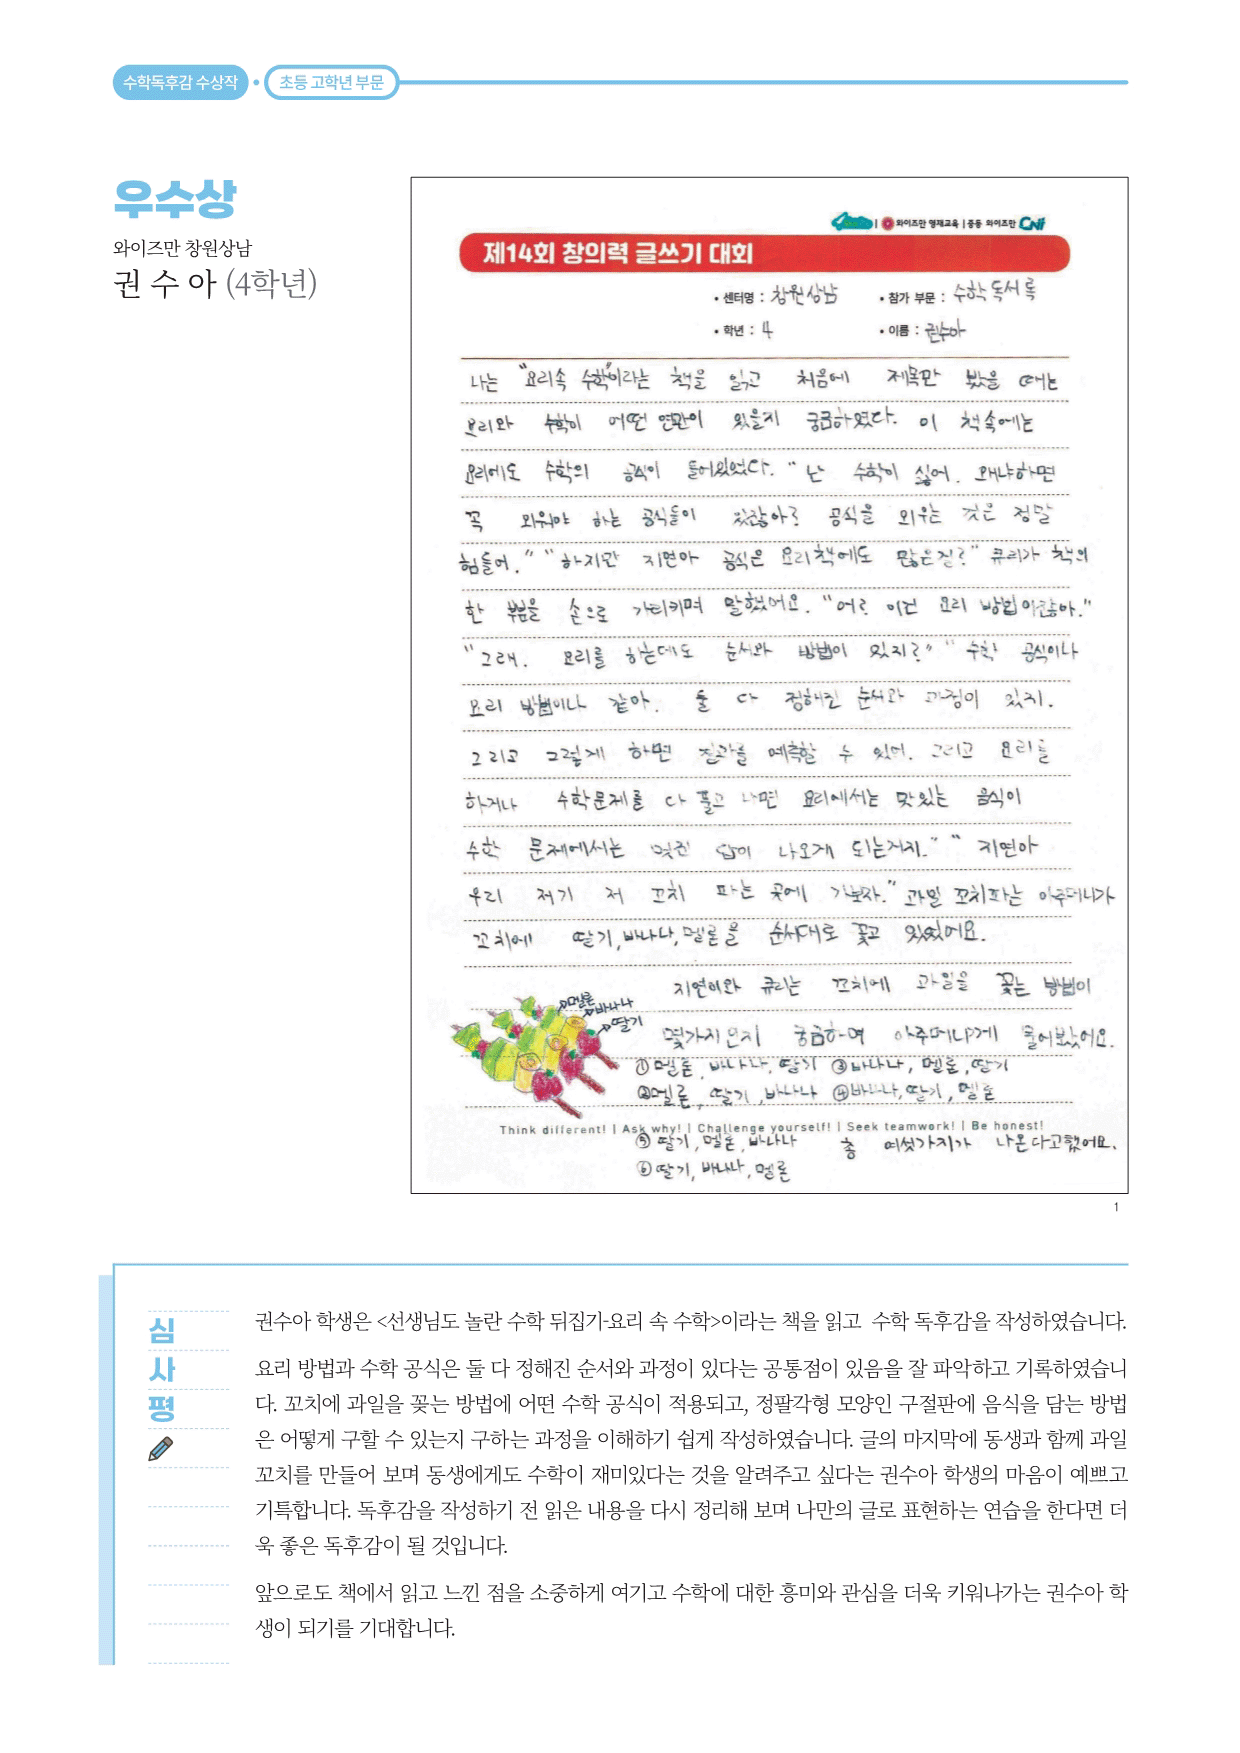 수학독후감 수상작 • 초등 고학년 부문
우수상
와이즈만 창원상남
권 수 아 (4학년)
와이즈만 영재교육 | 중등 와이즈만 CNi
제14회 창의력 글쓰기 대회
• 센터명 : 창원상남 • 참가 부문 : 수학 독서록
• 학년 : 4 • 이름 : 권수아
나는 "요리속 수학"이라는 책을 읽고 처음에 제목만 봤을 때는
요리와 수학이 어떤 연관이 있을지 궁금하였다. 이 책속에는
요리에도 수학의 공식이 들어있었다. "난 수학이 싫어. 왜냐하면
꼭 외워야 하는 공식들이 있잖아? 공식을 외우는 것은 정말
힘들어." "하지만 지연아 공식은 요리책에도 많은걸?" 큐리가 책의
한 부분을 손으로 가리키며 말했어요. "어? 이건 요리 방법이잖아."
"그래. 요리를 하는데도 순서와 방법이 있지?" "수학 공식이나
요리 방법이나 같아. 둘 다 정해진 순서와 과정이 있지.
그리고 그렇게 하면 결과를 예측할 수 있어. 그리고 요리를
하거나 수학문제를 다 풀고 나면 요리에서는 맛있는 음식이
수학 문제에서는 멋진 답이 나오게 되는거지." "지연아
우리 저기 저 꼬치 파는 곳에 가보자." 과일 꼬치파는 아주머니가
꼬치에 딸기,바나나,멜론을 순서대로 꽂고 있었어요.
지연이와 큐리는 꼬치에 과일을 꽂는 방법이
몇가지인지 궁금하여 아주머니께 물어봤어요.
멜론
바나나
딸기
①멜론, 바나나, 딸기 ③바나나, 멜론, 딸기
②멜론, 딸기, 바나나 ④바나나, 딸기, 멜론
Think different! | Ask why! | Challenge yourself! | Seek teamwork! | Be honest!
⑤ 딸기, 멜론, 바나나 총 여섯가지가 나온다고했어요.
⑥ 딸기, 바나나, 멜론
1
심
사
평
권수아 학생은 <선생님도 놀란 수학 뒤집기-요리 속 수학>이라는 책을 읽고 수학 독후감을 작성하였습니다.
요리 방법과 수학 공식은 둘 다 정해진 순서와 과정이 있다는 공통점이 있음을 잘 파악하고 기록하였습니
다. 꼬치에 과일을 꽂는 방법에 어떤 수학 공식이 적용되고, 정팔각형 모양인 구절판에 음식을 담는 방법
은 어떻게 구할 수 있는지 구하는 과정을 이해하기 쉽게 작성하였습니다. 글의 마지막에 동생과 함께 과일
꼬치를 만들어 보며 동생에게도 수학이 재미있다는 것을 알려주고 싶다는 권수아 학생의 마음이 예쁘고
기특합니다. 독후감을 작성하기 전 읽은 내용을 다시 정리해 보며 나만의 글로 표현하는 연습을 한다면 더
욱 좋은 독후감이 될 것입니다.
앞으로도 책에서 읽고 느낀 점을 소중하게 여기고 수학에 대한 흥미와 관심을 더욱 키워나가는 권수아 학
생이 되기를 기대합니다.